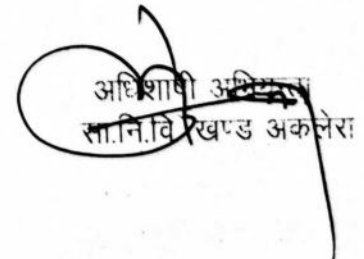 अधिशाषी अभियन्ता
सा.नि.वि. खण्ड अकलेरा